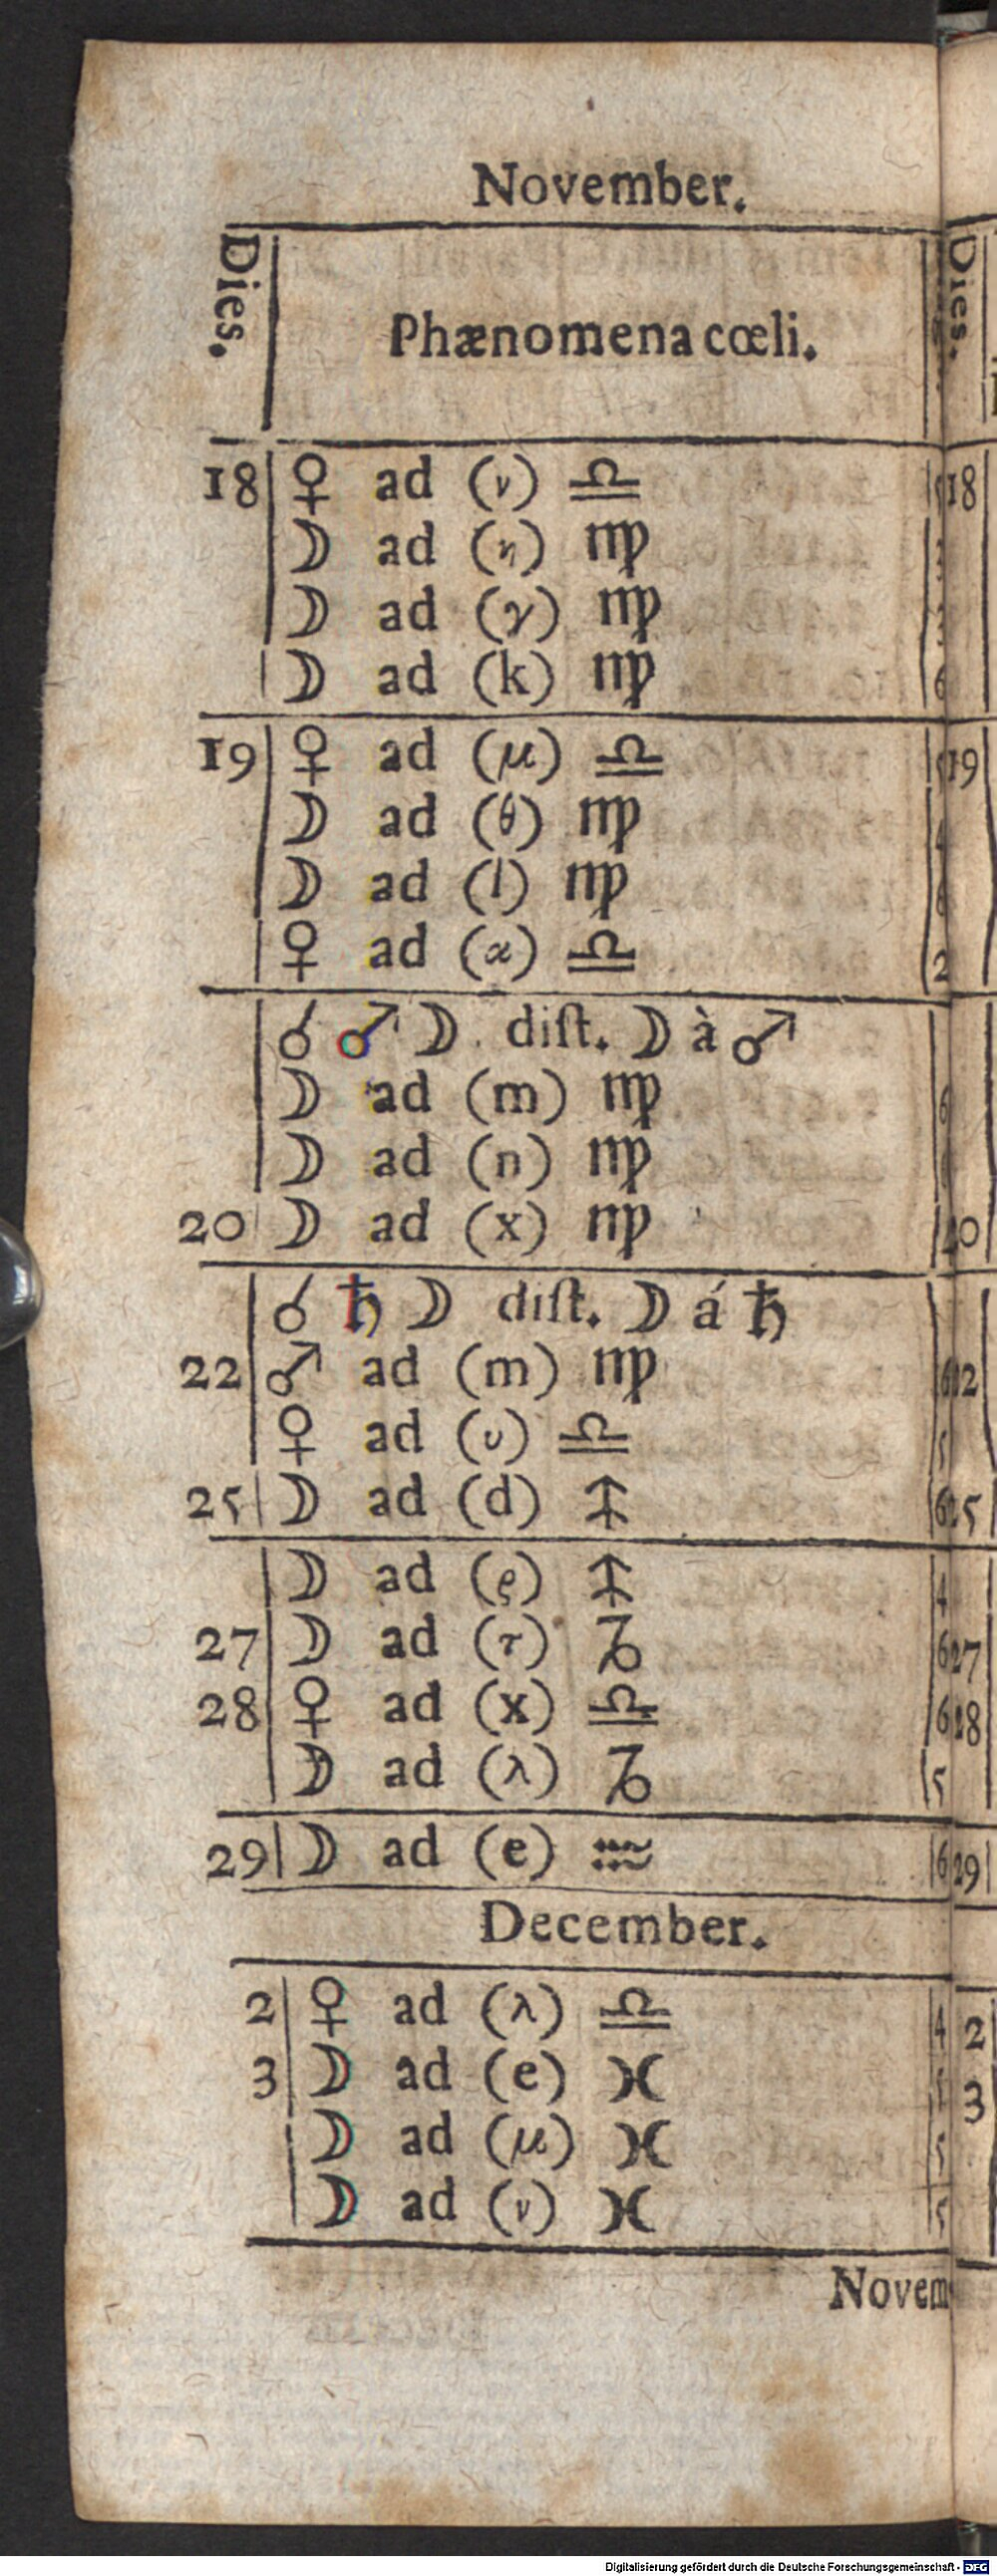 November.
Dies. Phænomena cœli.
18 ♀ ad (ν) ♎
☽ ad (η) ♍
☽ ad (γ) ♍
☽ ad (k) ♍
19 ♀ ad (μ) ♎
☽ ad (θ) ♍
☽ ad (l) ♍
♀ ad (α) ♎
☌ ♂ ☽. diſt. ☽ à ♂
☽ ad (m) ♍
☽ ad (n) ♍
20 ☽ ad (x) ♍
☌ ♄ ☽ diſt. ☽ á ♄
22 ♂ ad (m) ♍
♀ ad (υ) ♎
25 ☽ ad (d) ♐
☽ ad (ϱ) ♐
27 ☽ ad (τ) ♑
28 ♀ ad (x) ♎
☽ ad (λ) ♑
29 ☽ ad (e) ♒
December.
2 ♀ ad (λ) ♎
3 ☽ ad (e) ♓
☽ ad (μ) ♓
☽ ad (ν) ♓
Novem
Dies.
18
19
22
25
27
28
29
2
3
Digitalisierung gefördert durch die Deutsche Forschungsgemeinschaft - DFG